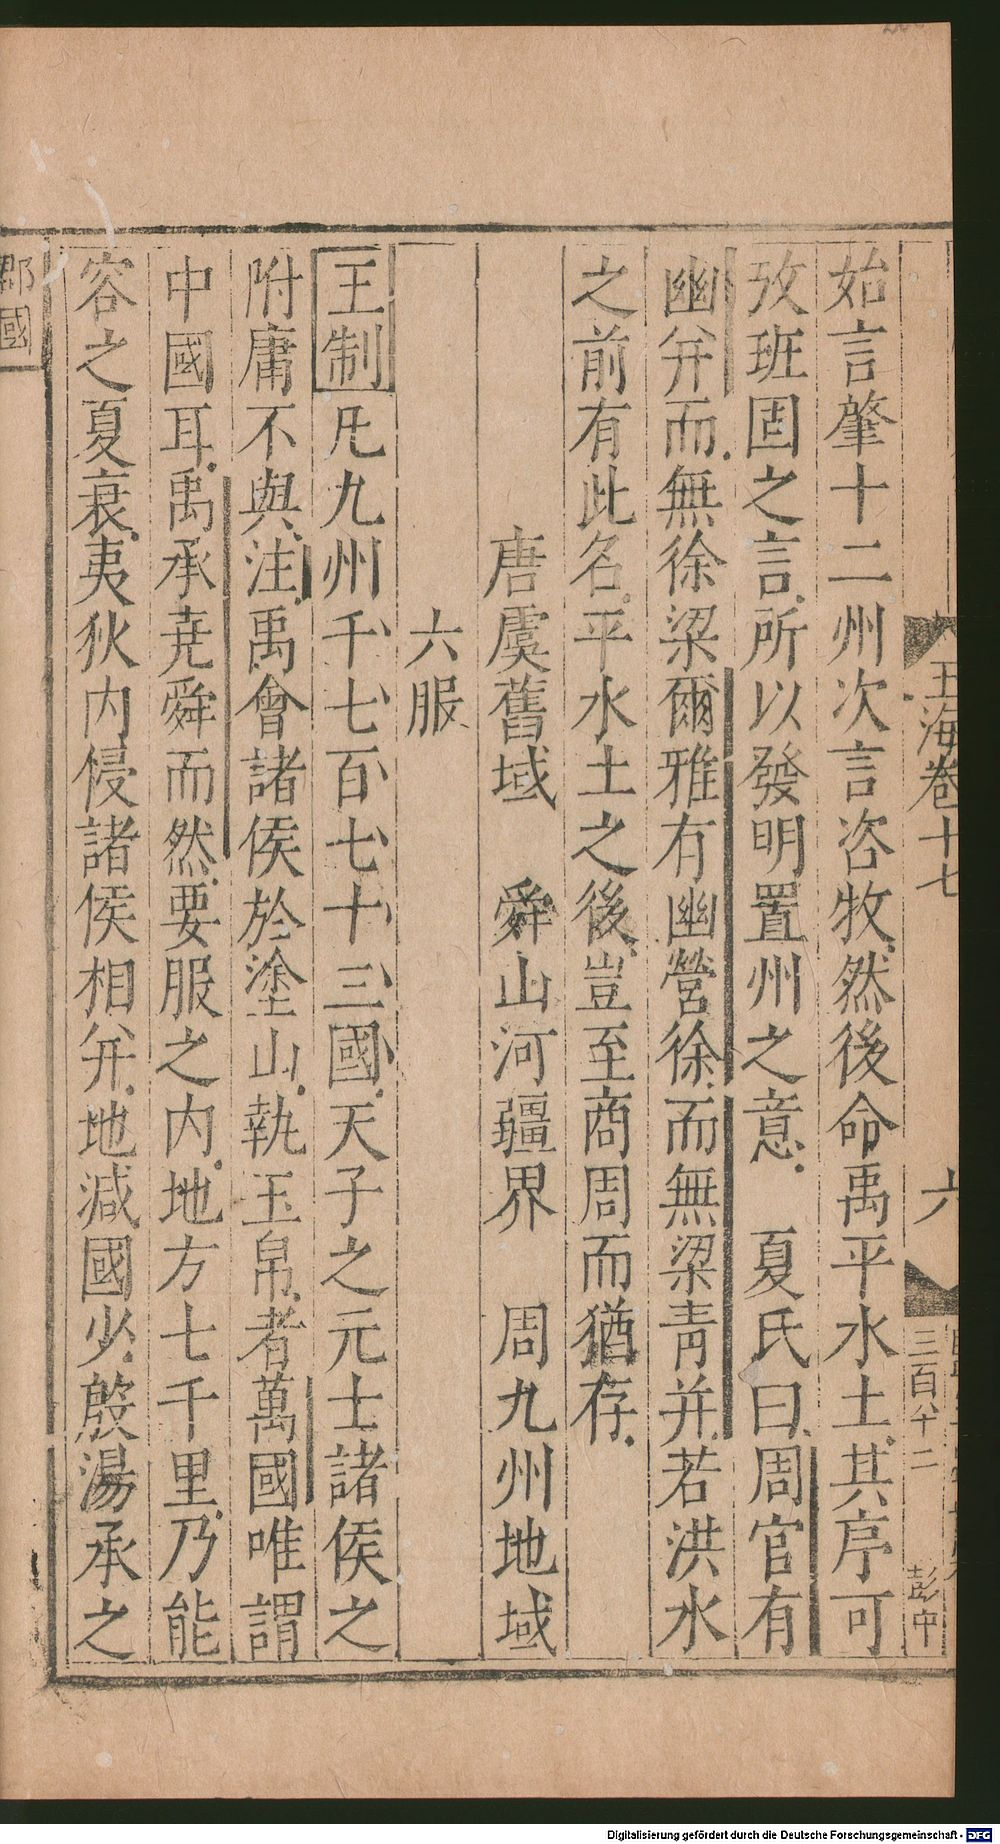 玉海卷十七
六
三百八十二
彭中
始言肇十二州次言咨牧然後命禹平水土其序可
攷班固之言所以發明置州之意　夏氏曰周官有
幽并而無徐梁爾雅有幽營徐而無梁青并若洪水
之前有此名平水土之後豈至商周而猶存
唐虞舊域　舜山河疆界　周九州地域
六服
王制凡九州千七百七十三國天子之元士諸侯之
附庸不與注禹會諸侯於塗山執玉帛者萬國唯謂
中國耳禹承堯舜而然要服之內地方七千里乃能
容之夏衰夷狄內侵諸侯相并地減國少殷湯承之
郡國
Digitalisierung gefördert durch die Deutsche Forschungsgemeinschaft - DFG